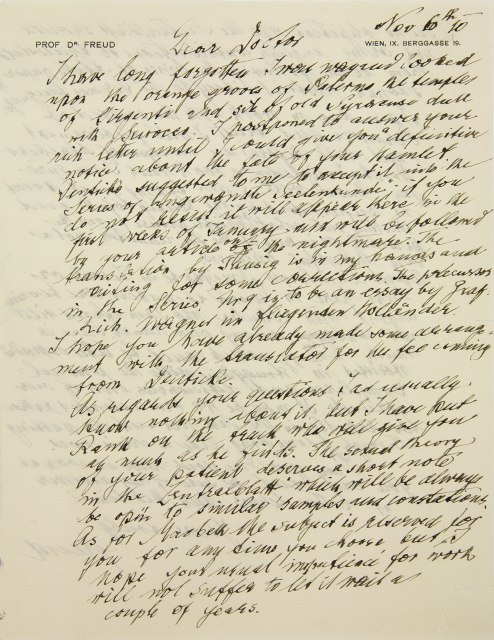 PROF. Dr. FREUD
Nov 6th 10
WIEN, IX. BERGGASSE 19.
Dear Doctor
I have long forgotten I ever looked
upon the orange groves of Palermo, the temples
of Girgenti and sile of old Syracuse dull
with Sirocco. I postponed to answer your
rich letter until I could give you a definitive
notice about the fate of your Hamlet.
Deuticke suggested to me to accept it into the
Series of angewandte Seelenkunde; if you
do not resist it will appear here in the
first weeks of January and will be followed
by your article on the nightmare. The
translation by Tausig is in my hands and
waiting for some corrections. The precursor
in the Series is to be an essay by Graf:
Rich. Wagner im fliegenden Holländer
I hope you have already made some arrange-
ment with the translator for the fee coming
from Deuticke.
As regards your questions I as usually
know nothing about it, but I have put
Rank on the track who will give you
as much as he finds. The sexual theory
of your patient deserves a short note
in the Zentralblatt which will be always
be open to similar samples and constations.
As for Macbeth the subject is reserved for
you for any time you choose but I
hope your usual for work
will not suffer to let it wait a
couple of years.